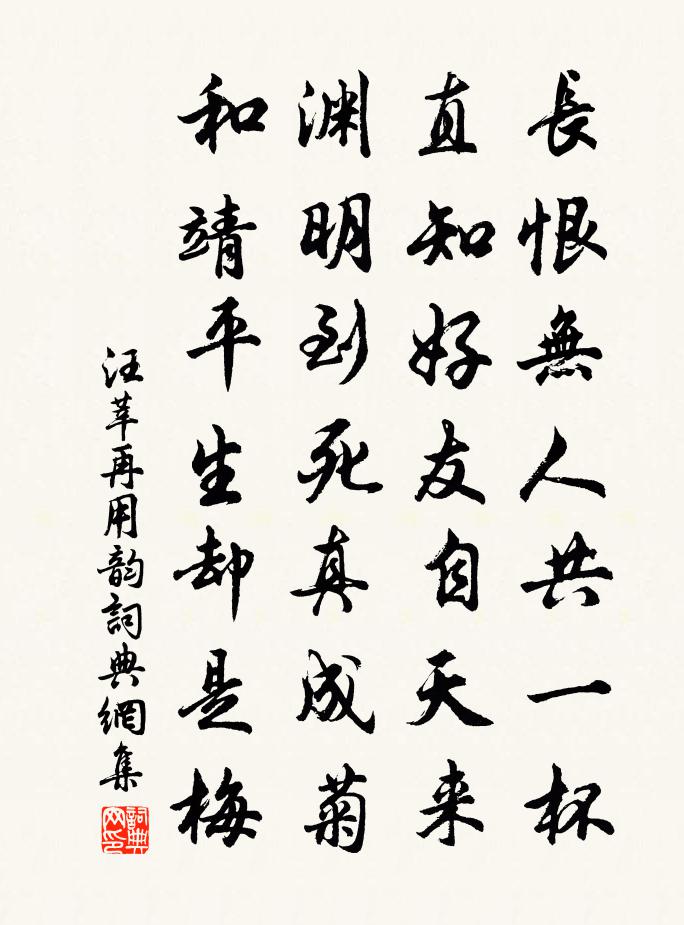 長恨無人共一杯
直知好友自天来
渊明到死真成菊
和靖平生却是梅
汪莘再用韵詞典網集
詞典网印